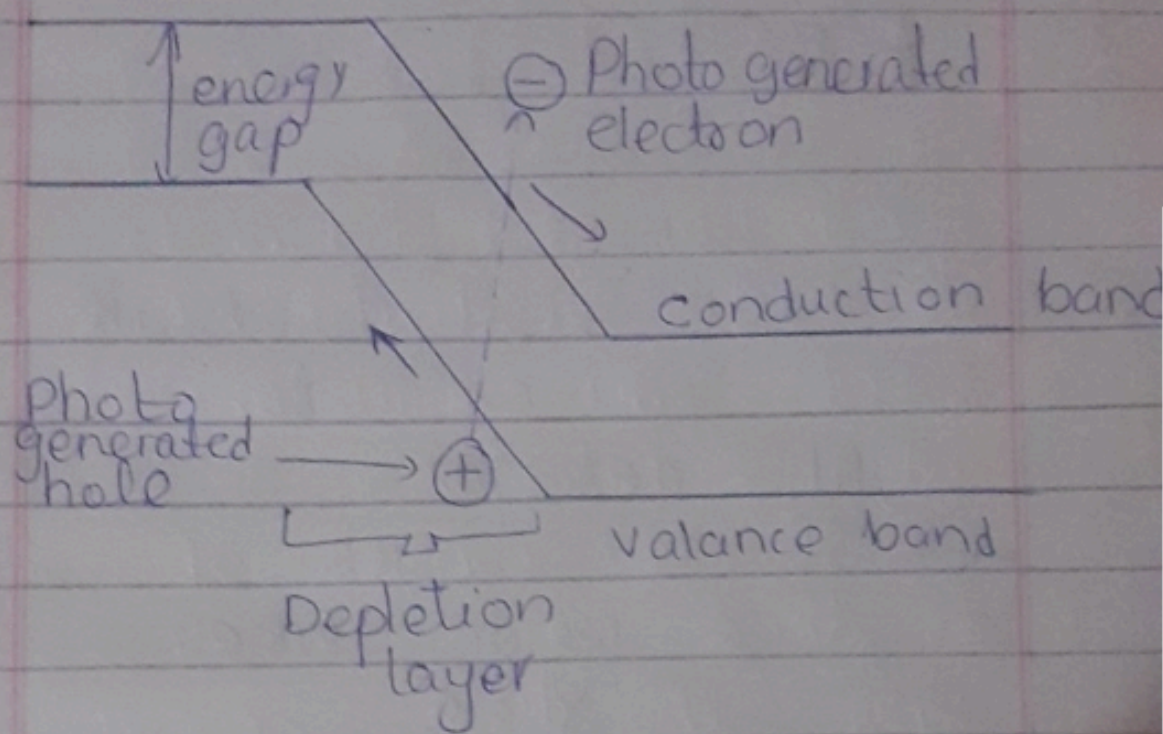 energy
gap
⊖ Photo generated
electron
conduction band
Photo
generated
hole
⊕
valance band
Depletion
layer